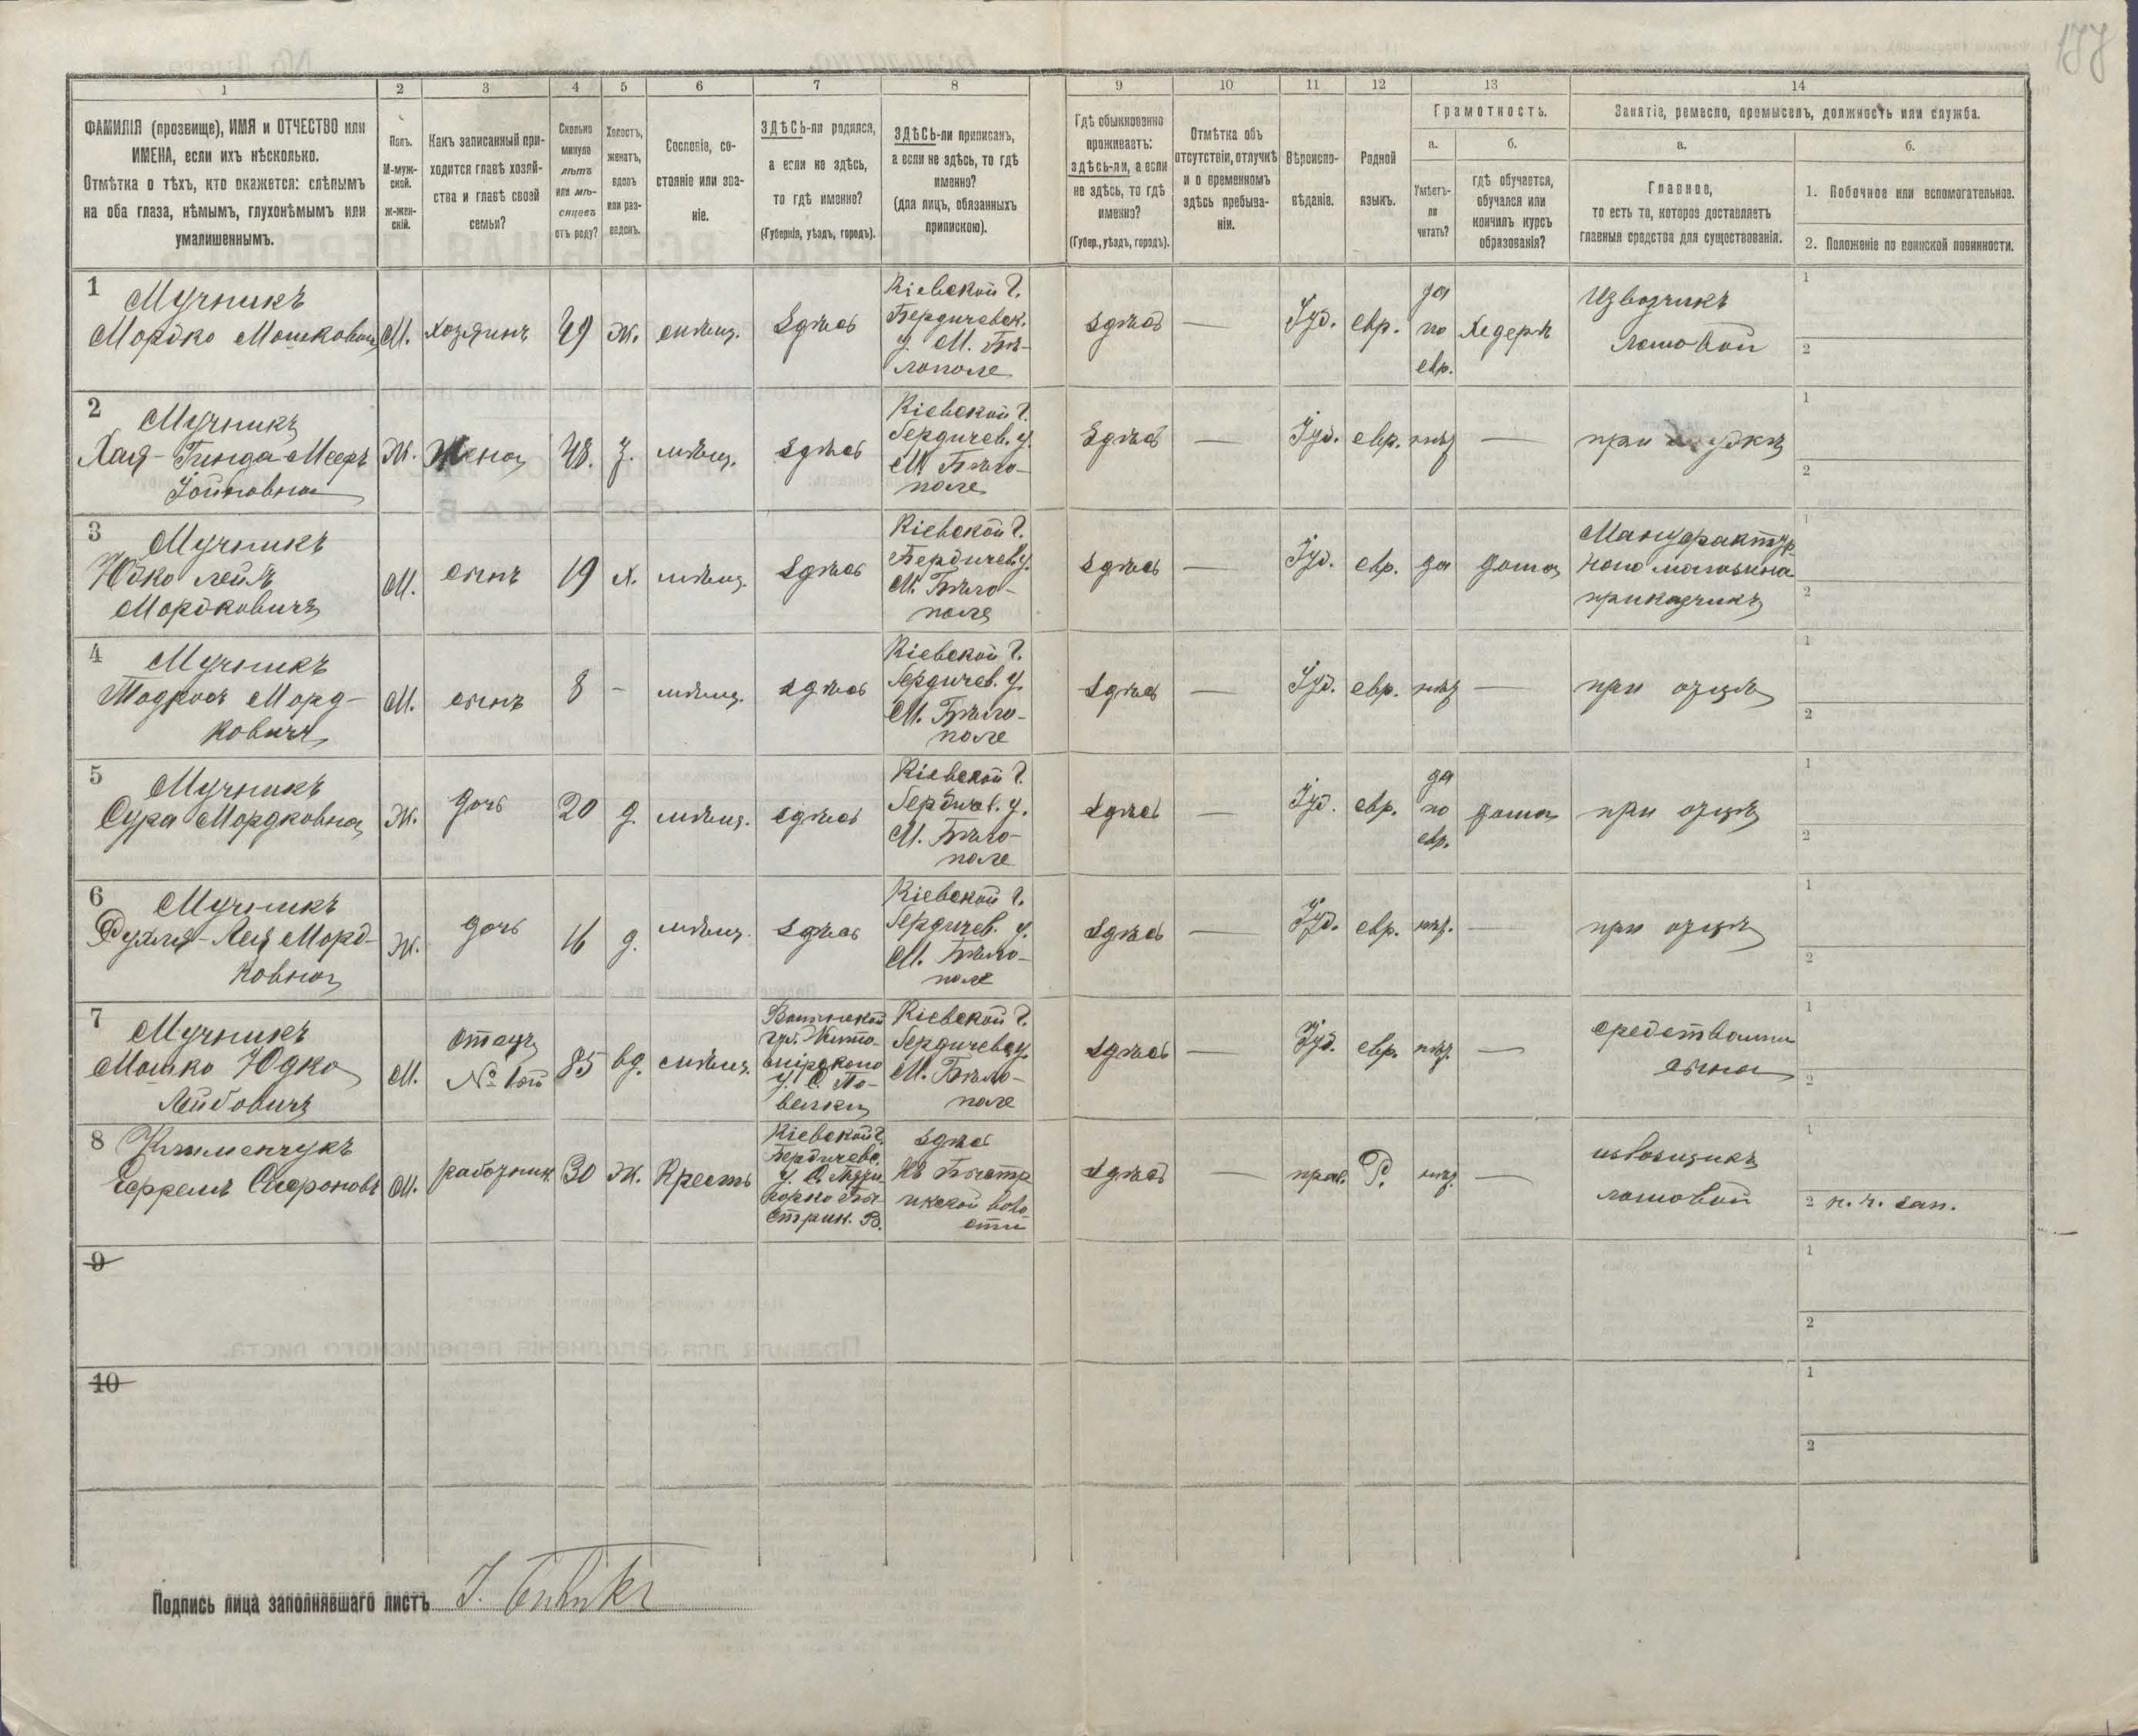 177
1
2
3
4
5
6
7
8
9
10
11
12
13
14
ФАМИЛІЯ (прозвище), ИМЯ и ОТЧЕСТВО или
ИМЕНА, если ихъ нѣсколько.
Отмѣтка о тѣхъ, кто окажется: слѣпымъ
на оба глаза, нѣмымъ, глухонѣмымъ или
умалишеннымъ.
Полъ.
М-муж-
ской.
Ж-жен-
скій.
Какъ записанный при-
ходится главѣ хозяй-
ства и главѣ своей
семьи?
Сколько
минуло
лѣтъ
или мѣ-
сяцевъ
отъ роду?
Холостъ,
женатъ,
вдовъ
или раз-
веденъ.
Сословіе, со-
стояніе или зва-
ніе.
ЗДѢСЬ-ли родился,
а если не здѣсь,
то гдѣ именно?
(Губернія, уѣздъ, городъ).
ЗДѢСЬ-ли приписанъ,
а если не здѣсь, то гдѣ
именно?
(для лицъ, обязанныхъ
припискою).
Гдѣ обыкновенно
проживаетъ:
здѣсь-ли, а если
не здѣсь, то гдѣ
именно?
(Губер., уѣздъ, городъ).
Отмѣтка объ
отсутствіи, отлучкѣ
и о временномъ
здѣсь пребыва-
ніи.
Вѣроиспо-
вѣданіе.
Родной
языкъ.
Грамотность.
а.
Умѣетъ-
ли
читать?
б.
гдѣ обучается,
обучался или
кончилъ курсъ
образованія?
Занятіе, ремесло, промыселъ, должность или служба.
а.
Главное,
то есть то, которое доставляетъ
главныя средства для существованія.
б.
1. Побочное или вспомогательное.
2. Положеніе по воинской повинности.
1
Мучникъ
Мордко Мошковичъ
М.
хозяинъ
49
ж.
мѣщ.
здѣсь
Кіевской г.
Бердичевск.
у. М. Бѣ-
лополе
здѣсь
—
Іуд.
евр.
да
по
евр.
Хедеръ
Извозчикъ
ломовой
1
2
2
Мучникъ
Хая-Гинда-Мееръ
Ж.
Жена
48.
з.
мѣщ.
здѣсь
Кіевской г.
Бердичев. у.
М. Бѣло-
поле
здѣсь
—
Іуд.
евр.
нѣтъ
—
при
1
2
3
Мучникъ
Юдко Лейбъ
Мордковичъ
М.
сынъ
19
х.
мѣщ.
здѣсь
Кіевской г.
Бердичев. у.
М. Бѣло-
поле
здѣсь
—
Іуд.
евр.
да
дома
Мануфактур-
ного магазина
приказчикъ
1
2
4
Мучникъ
Тодросъ Морд-
ковичъ
М.
сынъ
8
-
мѣщ.
здѣсь
Кіевской г.
Бердичев. у.
М. Бѣло-
поле
здѣсь
—
Іуд.
евр.
нѣтъ
—
при отцѣ
1
2
5
Мучникъ
Сура Мордковна
Ж.
дочь
20
д.
мѣщ.
здѣсь
Кіевской г.
Бердичев. у.
М. Бѣло-
поле
здѣсь
—
Іуд.
евр.
да
по
евр.
дома
при отцѣ
1
2
6
Мучникъ
Рухля-Лея Морд-
ковна
Ж.
дочь
16
д.
мѣщ.
здѣсь
Кіевской г.
Бердичев. у.
М. Бѣло-
поле
здѣсь
—
Іуд.
евр.
нѣт.
—
при отцѣ
1
2
7
Мучникъ
Мошко Юдко
Лейбовичъ
М.
Отецъ
№ 1ой
85
вд.
мѣщ.
Волынской
губ. Жито-
мірского
у. С.
Кіевской г.
Бердичев. у.
М. Бѣло-
поле
здѣсь
—
Іуд.
евр.
нѣт.
—
средствами
сына
1
2
8
Клименчукъ
Ефремъ Сафроновъ
М.
работник
30
ж.
Крестъ
Кіевской г.
Бердичевс.
у. С.
здѣсь
здѣсь
—
прав.
Р.
нѣт.
—
извозщикъ
ломовой
1
2 н. ч. зап.
9
1
2
10
1
2
Подпись лица заполнявшаго листъ